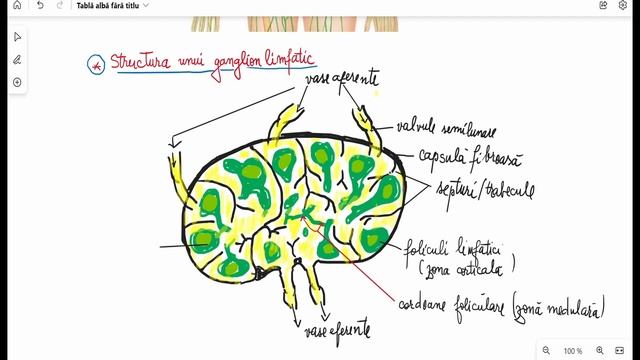 Tablă albă fără titlu
* Structura unui ganglion limfatic
vase aferente
valvule semilunare
capsulă fibroasă
septuri/trabecule
foliculi limfatici
(zona corticala)
cordoane foliculare (zonă medulară)
vase eferente
100 %